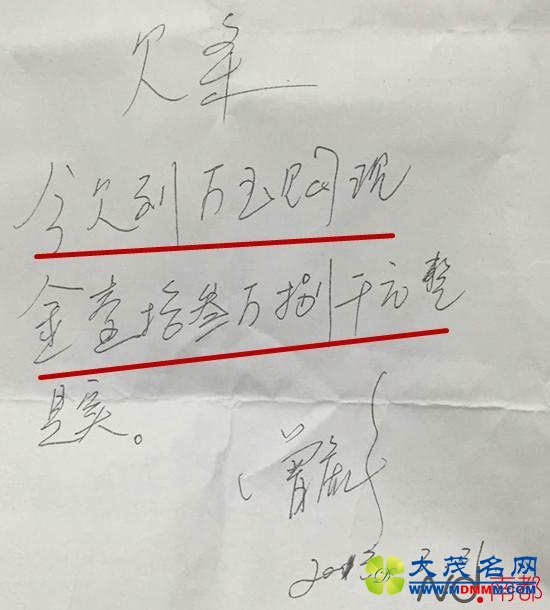 欠条
今欠到万玉阳现
金壹拾叁万捌千元整
是实。
大茂名网
WWW.MDMMM.COM
NO!南都